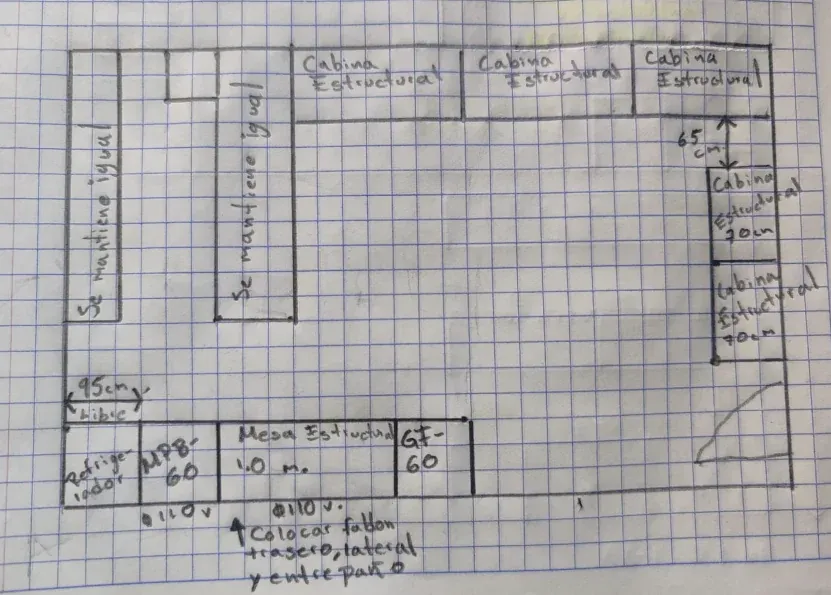 Cabina
Estructural
Cabina
Estructural
Cabina
Estructural
Se mantiene igual
Se mantiene igual
65
cm
Cabina
Estructural
70cm
Cabina
Estructural
70cm
95cm
Libre
Refrige-
rador
MPB-
60
Mesa Estructural
1.0 m.
GF-
60
110 v
110 v.
Colocar faldon
trasero, lateral
y entrepaño